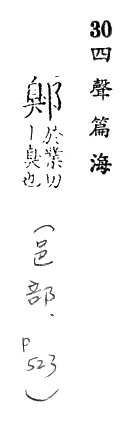 30 四聲篇海
鄓
於業切
丨臭也
(邑部．P523)